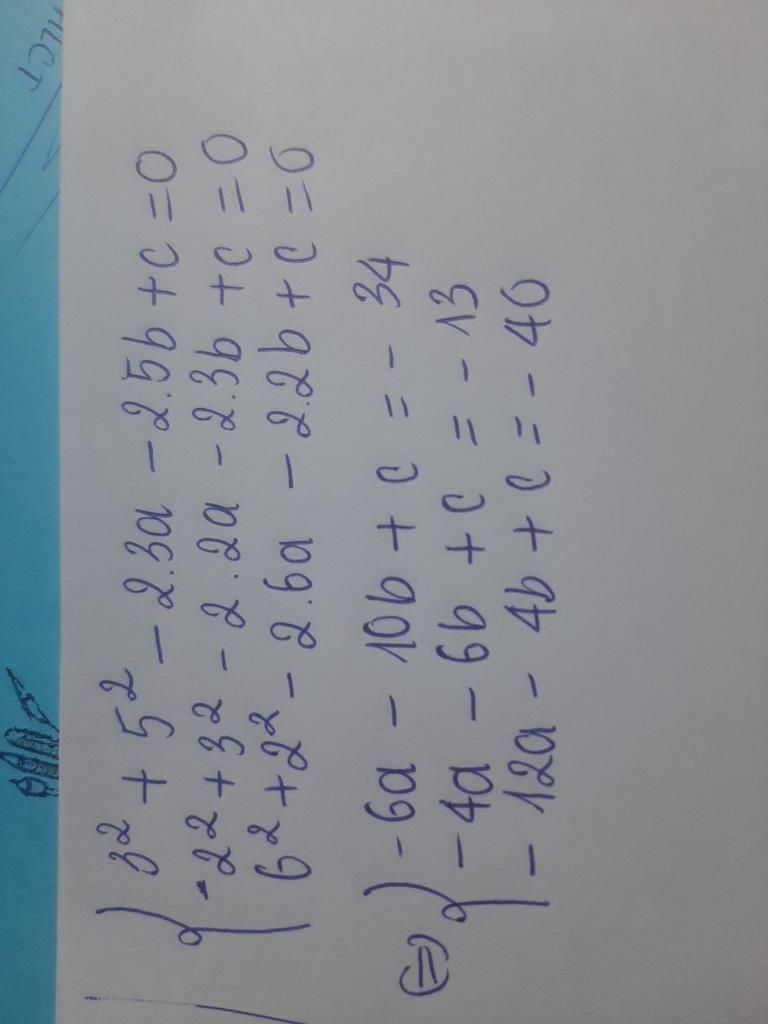 3² + 5² - 2.3a - 2.5b + c = 0
-2² + 3² - 2.2a - 2.3b + c = 0
6² + 2² - 2.6a - 2.2b + c = 0
⇔ -6a - 10b + c = - 34
- 4a - 6b + c = - 13
- 12a - 4b + c = - 40